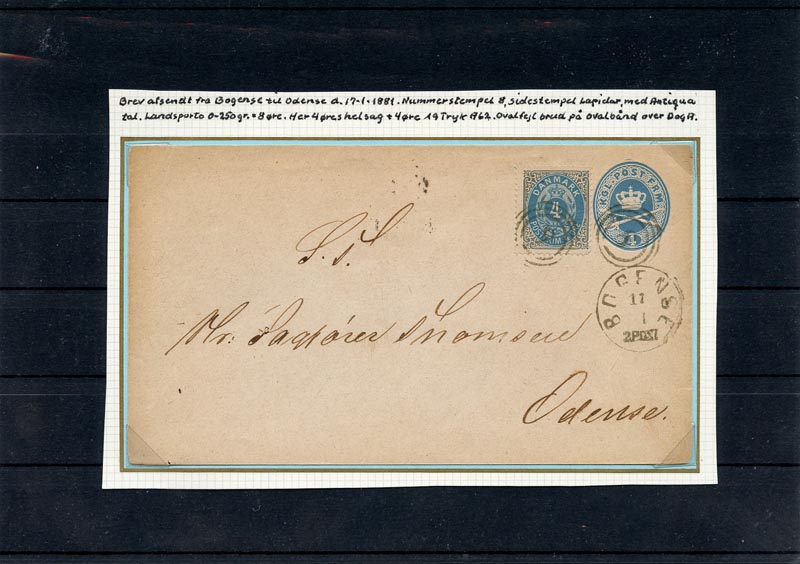 Brev afsendt fra Bogense til Odense d. 17-1-1881. Nummerstempel 8, sidestempel Lapidar, med Antiqua
tal. Landsporto 0-250gr. = 8øre. Her 4øres helsag + 4øre 19 Tryk A62. Ovalfejl brud på ovalbånd over D og A.
DANMARK
4
POSTFRIM
KGL. POST FRM.
4
S. T.
Hr. Sagfører Thomsen
BOGENSE
17
1
2.POST
Odense.